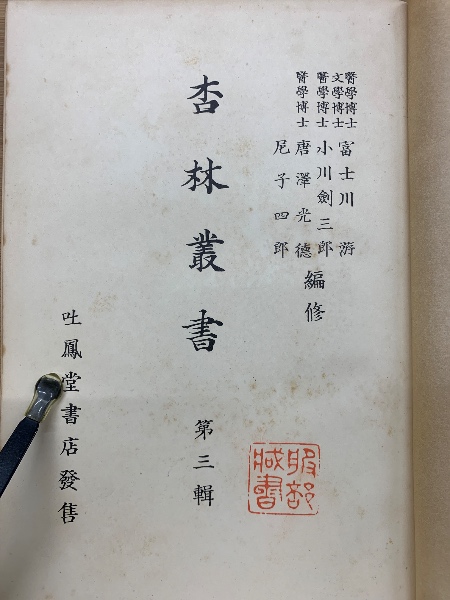 醫學博士
文學博士 富士川 游
醫學博士 小川劍三郎
醫學博士 唐澤光德
尼子四郎
編修
杏林叢書 第三輯
吐鳳堂書店發售
服部
臧書